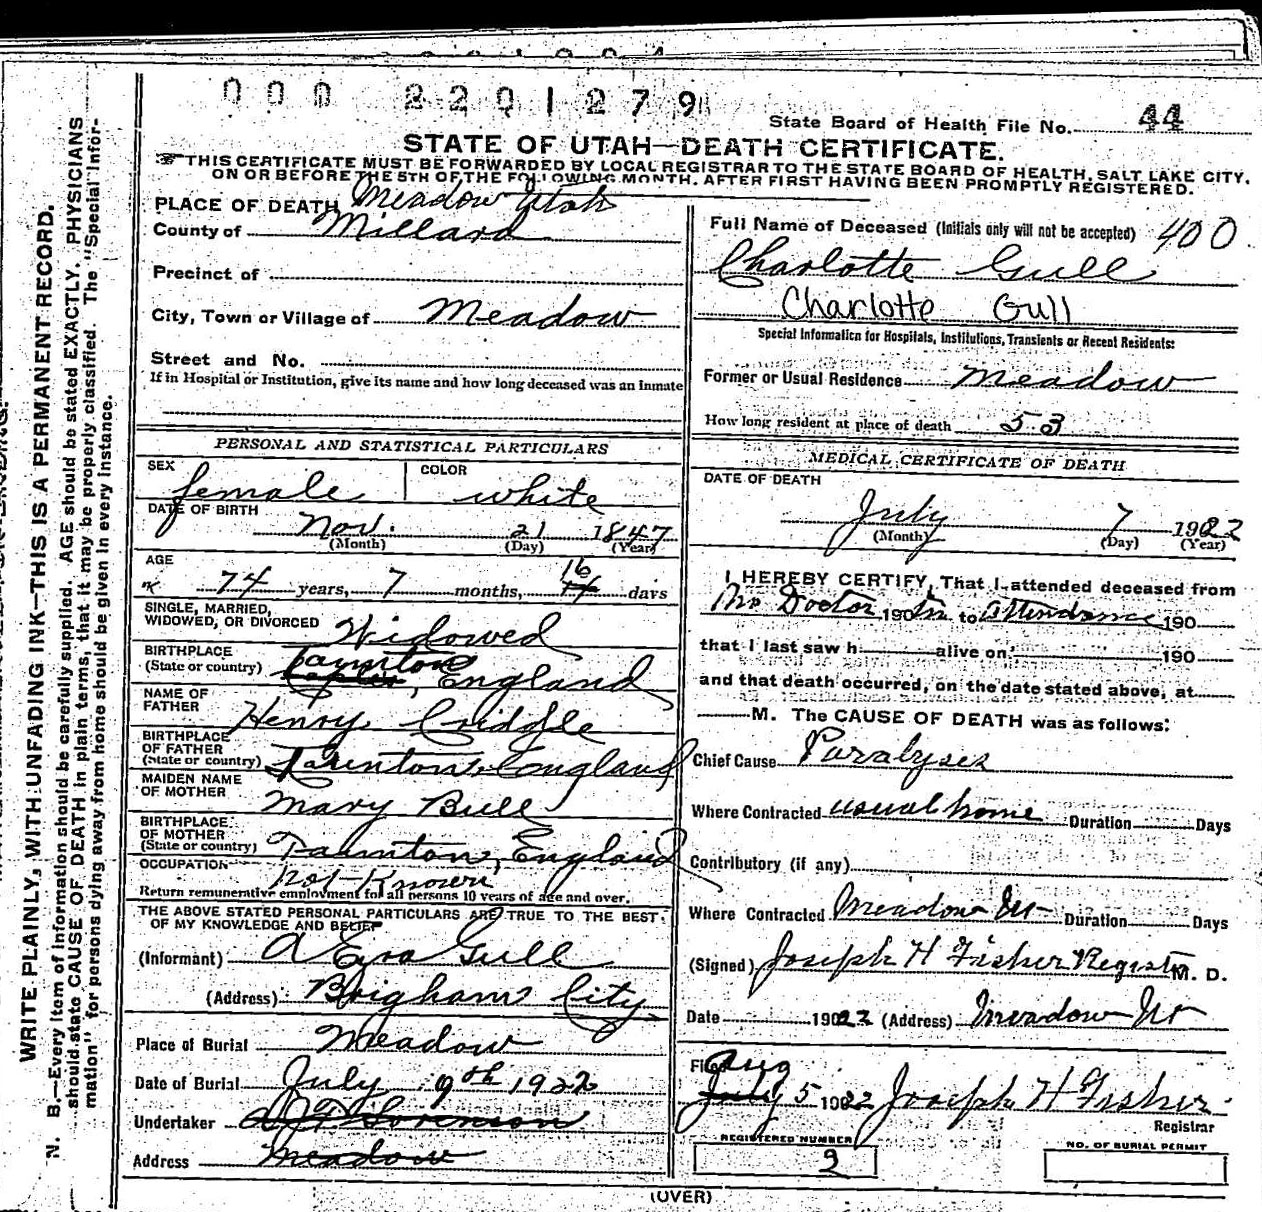 000 2201279
State Board of Health File No. 44
STATE OF UTAH—DEATH CERTIFICATE.
☞THIS CERTIFICATE MUST BE FORWARDED BY LOCAL REGISTRAR TO THE STATE BOARD OF HEALTH, SALT LAKE CITY,
ON OR BEFORE THE 5TH OF THE FOLLOWING MONTH, AFTER FIRST HAVING BEEN PROMPTLY REGISTERED.
WRITE PLAINLY, WITH UNFADING INK—THIS IS A PERMANENT RECORD.
N. B.—Every item of information should be carefully supplied. AGE should be stated EXACTLY. PHYSICIANS
should state CAUSE OF DEATH in plain terms, that it may be properly classified. The "Special Infor-
mation" for persons dying away from home should be given in every instance.
PLACE OF DEATH Meadow Utah
County of Millard
Precinct of
City, Town or Village of Meadow
Street and No.
If in Hospital or Institution, give its name and how long deceased was an inmate
PERSONAL AND STATISTICAL PARTICULARS
SEX female COLOR white
DATE OF BIRTH Nov. 21 1847
(Month) (Day) (Year)
AGE
74 years, 7 months, 16 days
SINGLE, MARRIED,
WIDOWED, OR DIVORCED Widowed
BIRTHPLACE
(State or country) Taunton, England
NAME OF
FATHER Henry Criddle
BIRTHPLACE
OF FATHER
(State or country) Taunton, England
MAIDEN NAME
OF MOTHER Mary Bull
BIRTHPLACE
OF MOTHER
(State or country) Taunton, England
OCCUPATION not Known
Return remunerative employment for all persons 10 years of age and over.
THE ABOVE STATED PERSONAL PARTICULARS ARE TRUE TO THE BEST
OF MY KNOWLEDGE AND BELIEF
(Informant) A Ezra Gull
(Address) Brigham City
Place of Burial Meadow
Date of Burial July 9th 1922
Undertaker
Address Meadow
Full Name of Deceased (Initials only will not be accepted) 400
Charlotte Gull
Charlotte Gull
Special Information for Hospitals, Institutions, Transients or Recent Residents:
Former or Usual Residence Meadow
How long resident at place of death 53
MEDICAL CERTIFICATE OF DEATH
DATE OF DEATH
July 7 1922
(Month) (Day) (Year)
I HEREBY CERTIFY, That I attended deceased from
No Doctor 190 in to attendance 190
that I last saw h alive on 190
and that death occurred, on the date stated above, at
M. The CAUSE OF DEATH was as follows:
Chief Cause Paralyses
Where Contracted usual home Duration Days
Contributory (if any)
Where Contracted Meadow Ut Duration Days
(Signed) Joseph H Fisher Registr M. D.
Date 1922 (Address) Meadow Ut
Filed Aug
July 5 1922 Joseph H Fisher
Registrar
REGISTERED NUMBER
2
NO. OF BURIAL PERMIT
(OVER)